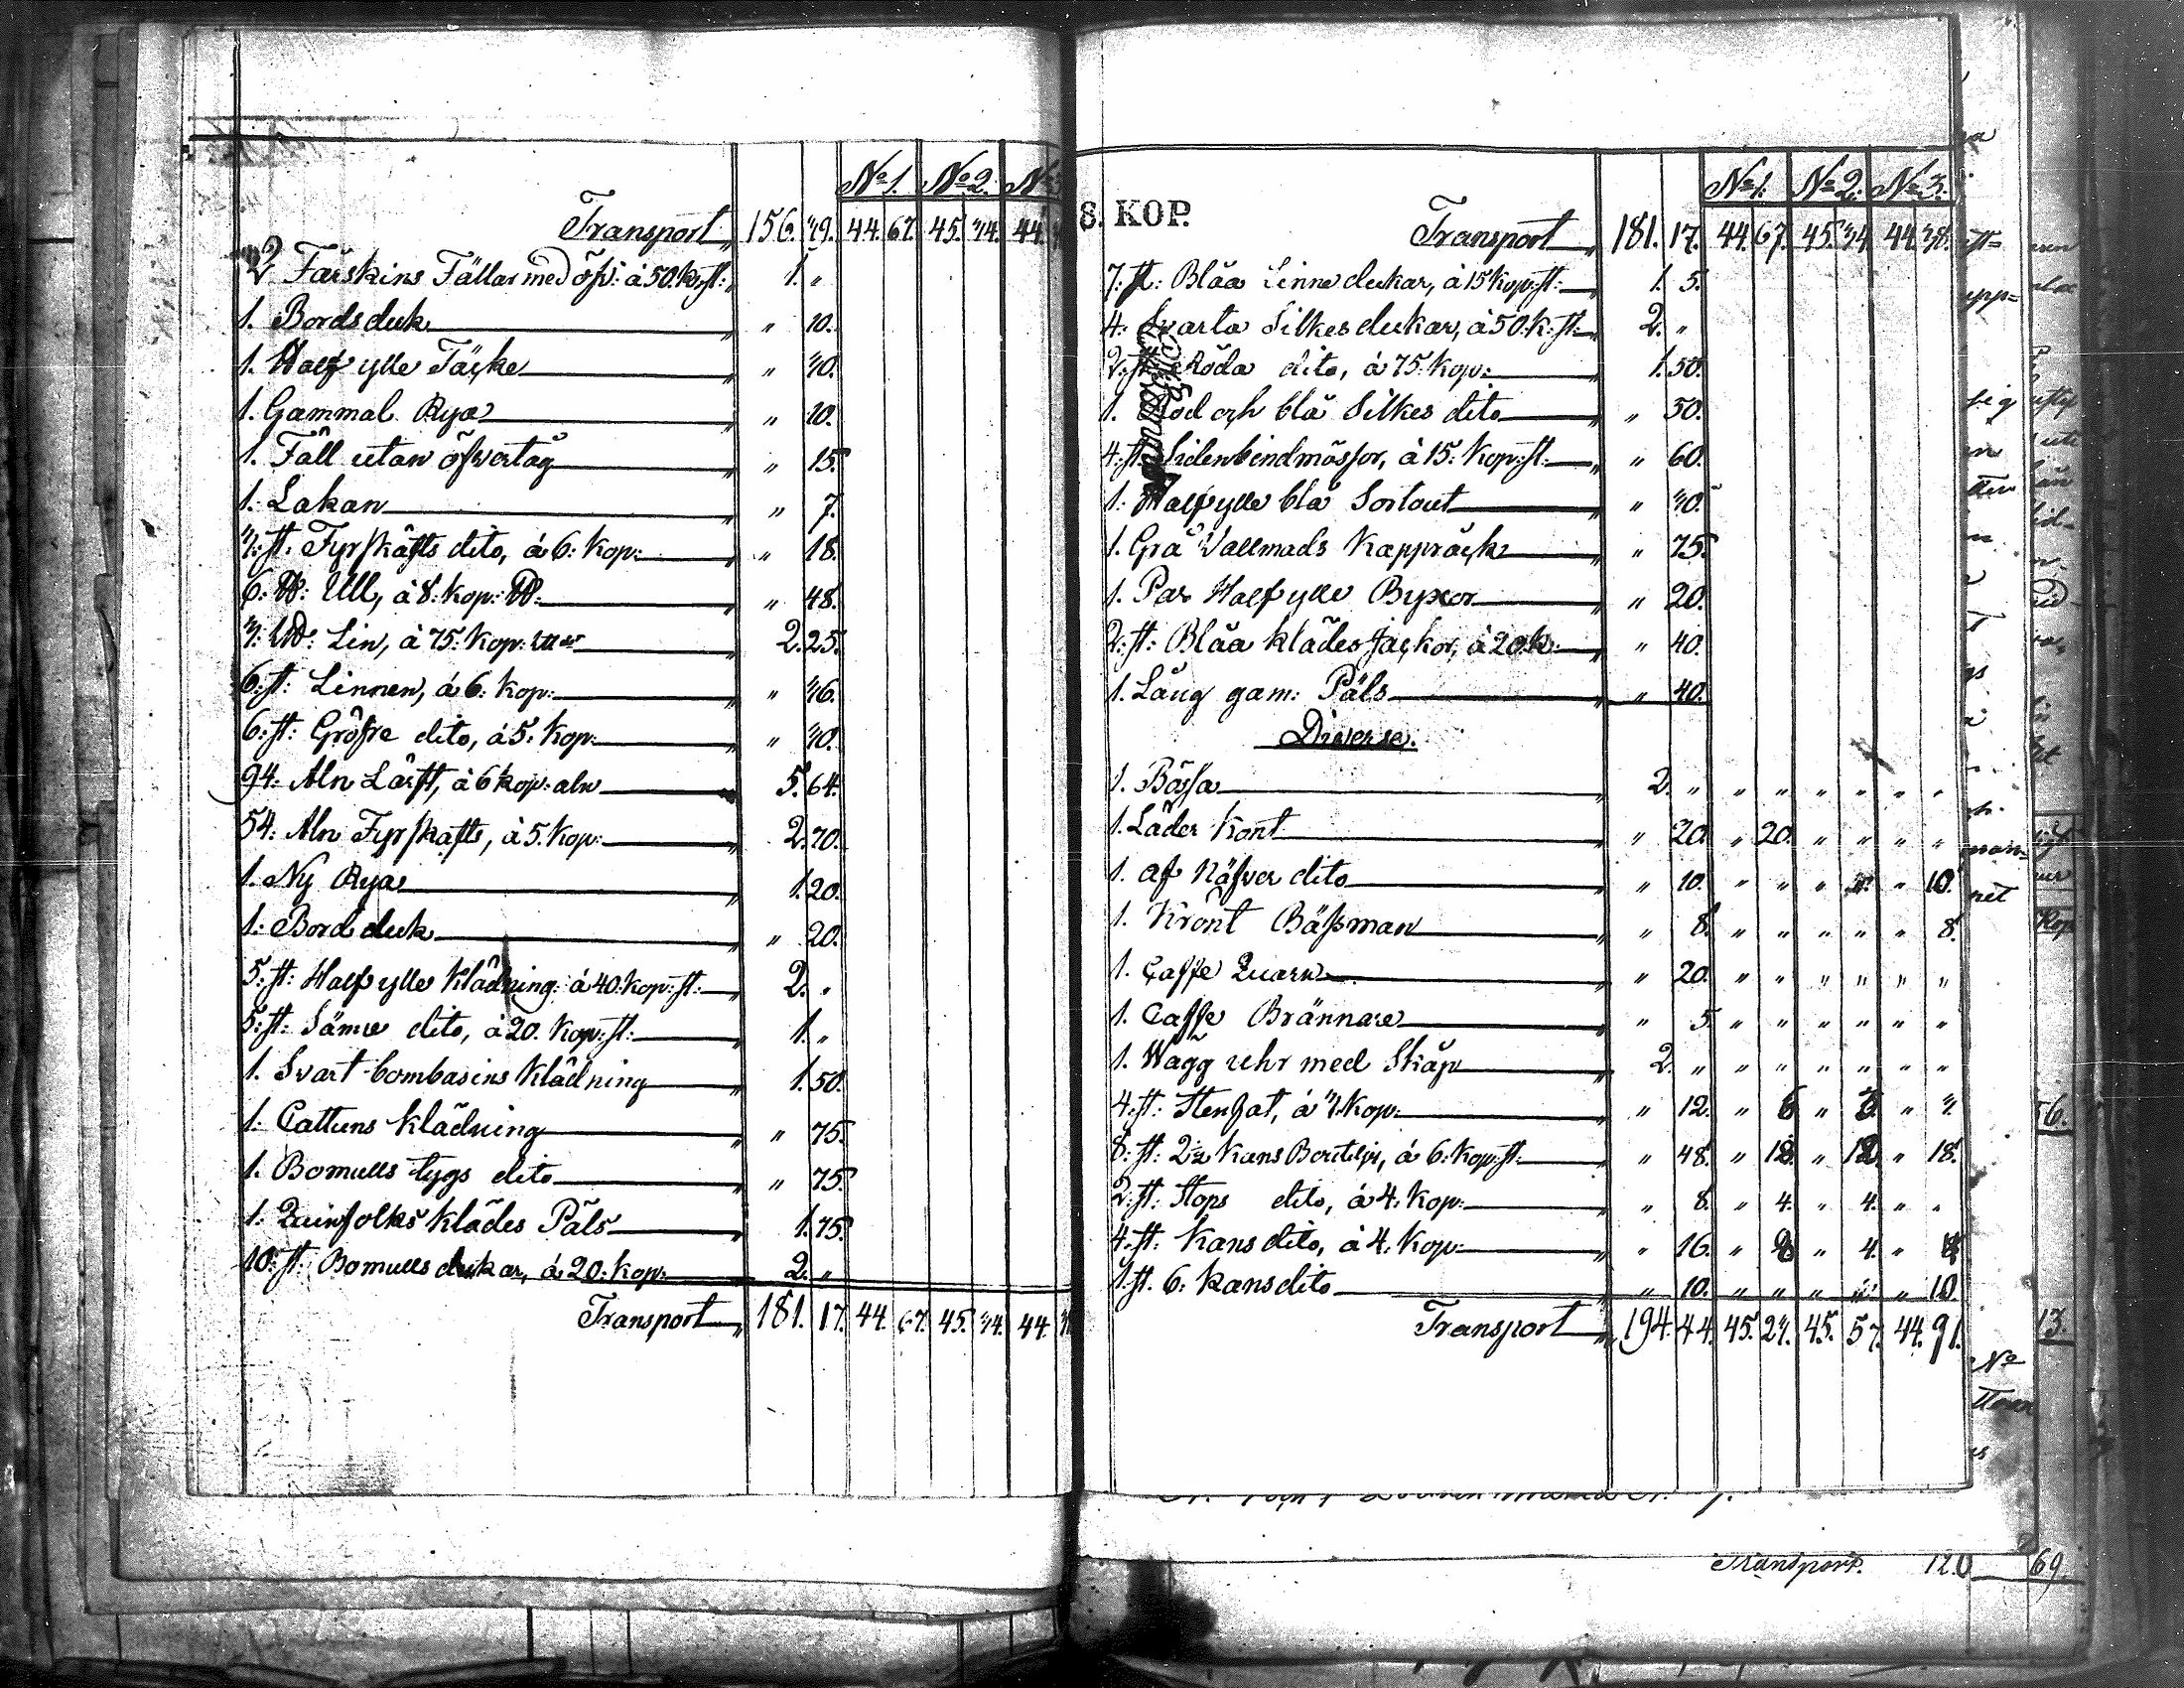 No 1. No 2. No
Transport „ 156. 39. 44. 67. 45. 34. 44.
2 Fårskins Fällar med öfv: à 50. k. st: „ 1. „
1. Bordsduk „ „ 10.
1. Half ylle Täcke „ „ 30.
1. Gammal Rya „ „ 10.
1. Fäll utan öfvertåg „ „ 15.
1. Lakan „ „ 7.
3: st: Fyrskafts dito, à 6: kop: „ „ 18.
6: ℔: Ull, à 8: kop: ℔: „ „ 48.
3: L℔: Lin, à 75: kop: „ 2. 25.
6: st: Linnen, à 6: kop: „ „ 36.
6: st: Gröfre dito, à 5: kop: „ „ 30.
94: Aln Lärft, à 6 kop: aln „ 5. 64.
54: Aln Fyrskafts, à 5. kop: „ 2. 70.
1. Ny Rya „ 1. 20.
1: Bord duk „ „ 20.
5: st: Half ylle Klädning: à 40: kop: st: „ 2. „
5: st: Sämre dito, à 20. kop: st: „ 1. „
1. Svart bombasins Klädning „ 1. 50.
1. Cattuns Klädning „ „ 75.
1. Bomulls tygs dito „ „ 75.
1. Quinfolks Klädes Päls „ 1. 75.
10: st: Bomulls dukar, à 20: kop: „ 2. „
Transport „ 181. 17. 44. 67. 45. 34. 44.
8. KOP.
No 1. No 2. No 3.
Transport „ 181. 17. 44. 67. 45. 34. 44. 38.
7: st: Blåa Linne dukar, à 15 kop: st: „ 1. 5.
4: Svarta Silkes dukar, à 50. k: st: „ 2. „
2: st: Röda dito, à 75: kop: „ 1. 50.
1. Röd och blå Silkes dito „ „ 50.
4: st: Sidenbindmössor, à 15: kop: st: „ „ 60.
1. Half ylle blå Sortout „ „ 30.
1. Grå Vallmads Kappräck „ „ 75.
1. Par Half ylle Byxor „ „ 20.
2: st: Blåa klädes Jackor, à 20. k: „ „ 40.
1. Lång gam: Päls „ „ 40.
Diverse.
1. Bössa „ 2. „ „ „ „ „ „ „
1. Läder Kont „ „ 20. „ 20. „ „ „ „
1. af Näfver dito „ „ 10. „ „ „ „ „ 10.
1. Krönt Bäsman „ „ 8. „ „ „ „ „ 8.
1. Caffe Quarn „ „ 20. „ „ „ „ „ „
1. Caffe Brännare „ „ 5. „ „ „ „ „ „
1. Wägg uhr med Skåp „ 2. „ „ „ „ „ „ „
4: st: Stenfat, à 3. kop: „ „ 12. „ 6 „ „ 3.
8: st: 2½ Kans Bouteljer, à 6: kop: st: „ „ 48. „ 18. „ 12. „ 18.
2: st: Stops dito, à 4. kop: „ „ 8. „ 4. „ 4. „ „
4: st: Kans dito, à 4. kop: „ „ 16. „ 8 „ 4. „ 4
1. st. 6: Kans dito „ „ 10. „ „ „ „ „ 10.
Transport „ 194. 44. 45. 23. 45. 57. 44. 91.
Transport. 120 69